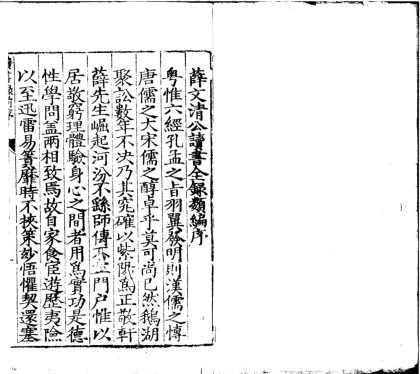 薛文清公讀書全録類編序
粤惟六經孔孟之㫖羽翼發明則漢儒之慱
唐儒之大宋儒之醇卓乎莫可尚已然鵝湖
聚訟數年不决乃其究確以紫陽爲正敬軒
薛先生崛起河汾不繇師傳不立門户惟以
居敬窮理體驗身心之間者用爲實功是德
性學問盖兩相致焉故自家食臣遊歷夷險
以至迅雷易簀靡時不挾策紗悟懼契還塞